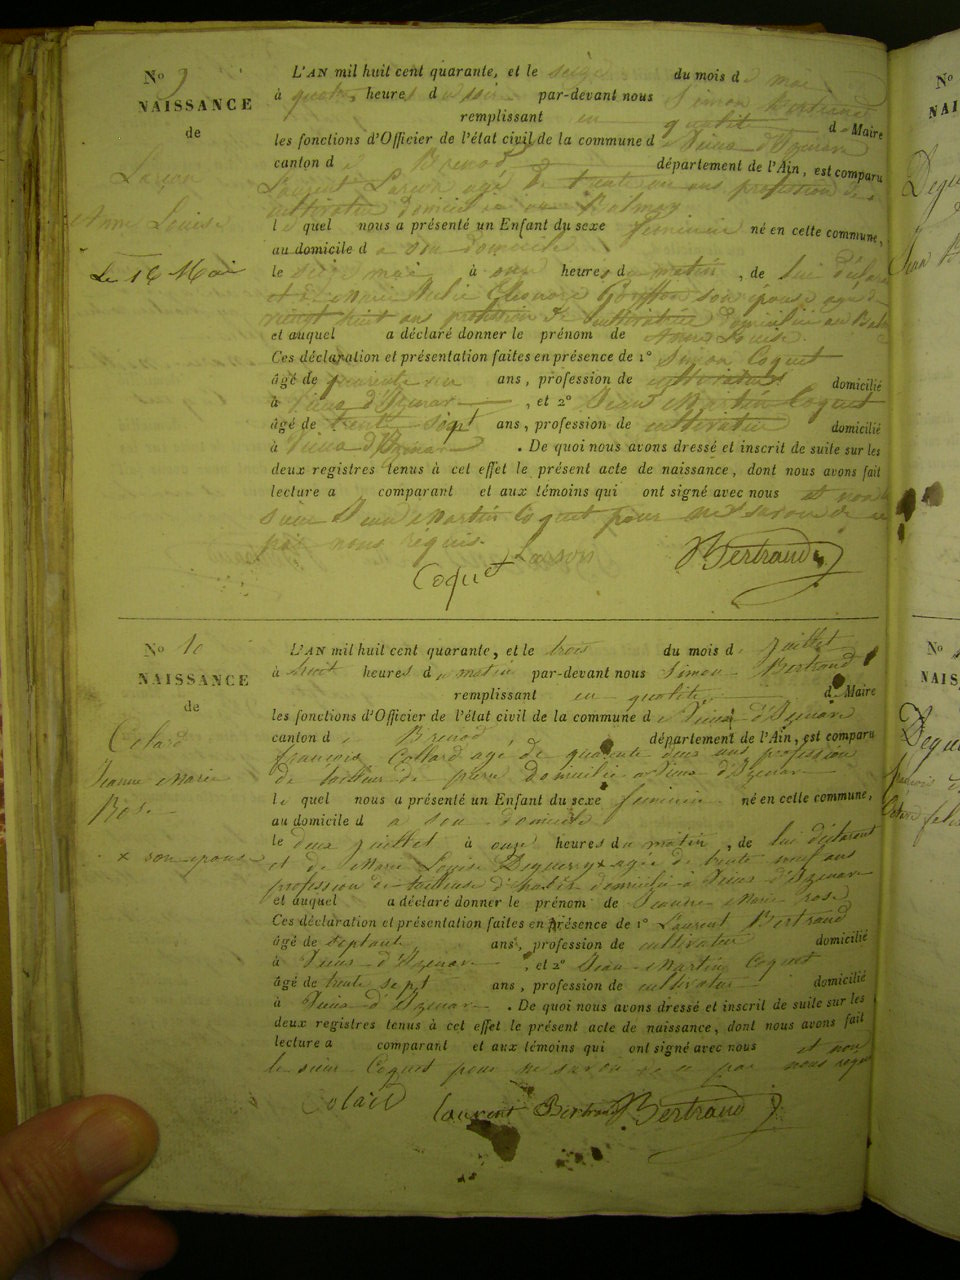 N.º 9
NAISSANCE
de
Larçon
Anne Louise
Le 16 Mai
L'AN mil huit cent quarante, et le seize du mois de mai
à quatre heures du soir par-devant nous Simon Bertrand
remplissant en qualité de Maire
les fonctions d'Officier de l'état civil de la commune de Vieux d'Izenave
canton de Brenod département de l'Ain, est comparu
Laurent Larçon agé de trente un ans profession de
cultivateur domicilié au Balmay
lequel nous a présenté un Enfant du sexe feminin né en cette commune,
au domicile d a son domicile
le seize mai à onze heures du matin, de lui déclarant
et de Marie Eleonore son épouse agée de
vingt huit ans profession de cultivatrice domiciliée au
et auquel a déclaré donner le prénom de Anne Louise.
Ces déclaration et présentation faites en présence de 1º Simon Coquet
âgé de quarante ans, profession de cultivateur domicilié
à Vieux d'Izenave, et 2º Jean Martin Coquet
âgé de trente sept ans, profession de cultivateur domicilié
à Vieux d'Izenave. De quoi nous avons dressé et inscrit de suite sur les
deux registres tenus à cet effet le présent acte de naissance, dont nous avons fait
lecture a comparant et aux témoins qui ont signé avec nous et non le
sieur Jean Martin Coquet pour ne savoir de ce
par nous requis.
Coquet Larson Bertrand
N.º 10
NAISSANCE
de
Colard
Jeanne Marie
Rose
x son épouse
L'AN mil huit cent quarante, et le trois du mois de juillet
à huit heures du matin par-devant nous Simon Bertrand
remplissant en qualité de Maire
les fonctions d'Officier de l'état civil de la commune de Vieux d'Izenave
canton de Brenod département de l'Ain, est comparu
françois Collard agé de quarante deux ans profession
de tailleur de pierre domicilié a Vieux d'Izenave
lequel nous a présenté un Enfant du sexe feminin né en cette commune,
au domicile d a son domicile
le deux juillet à onze heures du matin, de lui déclarant
et de Marie Louise Dequerry x agée de trente neuf ans
profession de tailleuse d'habits domiciliée à Vieux d'Izenave
et auquel a déclaré donner le prénom de Jeanne Marie rose
Ces déclaration et présentation faites en présence de 1º Laurent Bertrand
âgé de septante ans, profession de cultivateur domicilié
à Vieux d'Izenave, et 2º Jean Martin Coquet
âgé de trente sept ans, profession de cultivateur domicilié
à Vieux d'Izenave. De quoi nous avons dressé et inscrit de suite sur les
deux registres tenus à cet effet le présent acte de naissance, dont nous avons fait
lecture a comparant et aux témoins qui ont signé avec nous et non
le sieur Coquet pour ne savoir de ce par nous requis
Colard Laurent Bertrand Bertrand